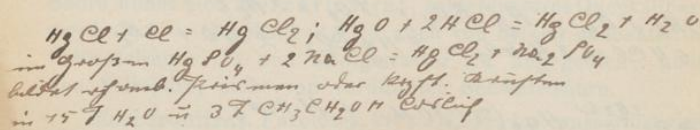 HgCl + Cl = HgCl2; HgO + 2HCl = HgCl2 + H2O
im Großen HgSO4 + 2NaCl = HgCl2 + Na2SO4
bildet rhomb. Prismen oder kryst.
in 15 T H2O u 3 T CH3CH2OH löslich